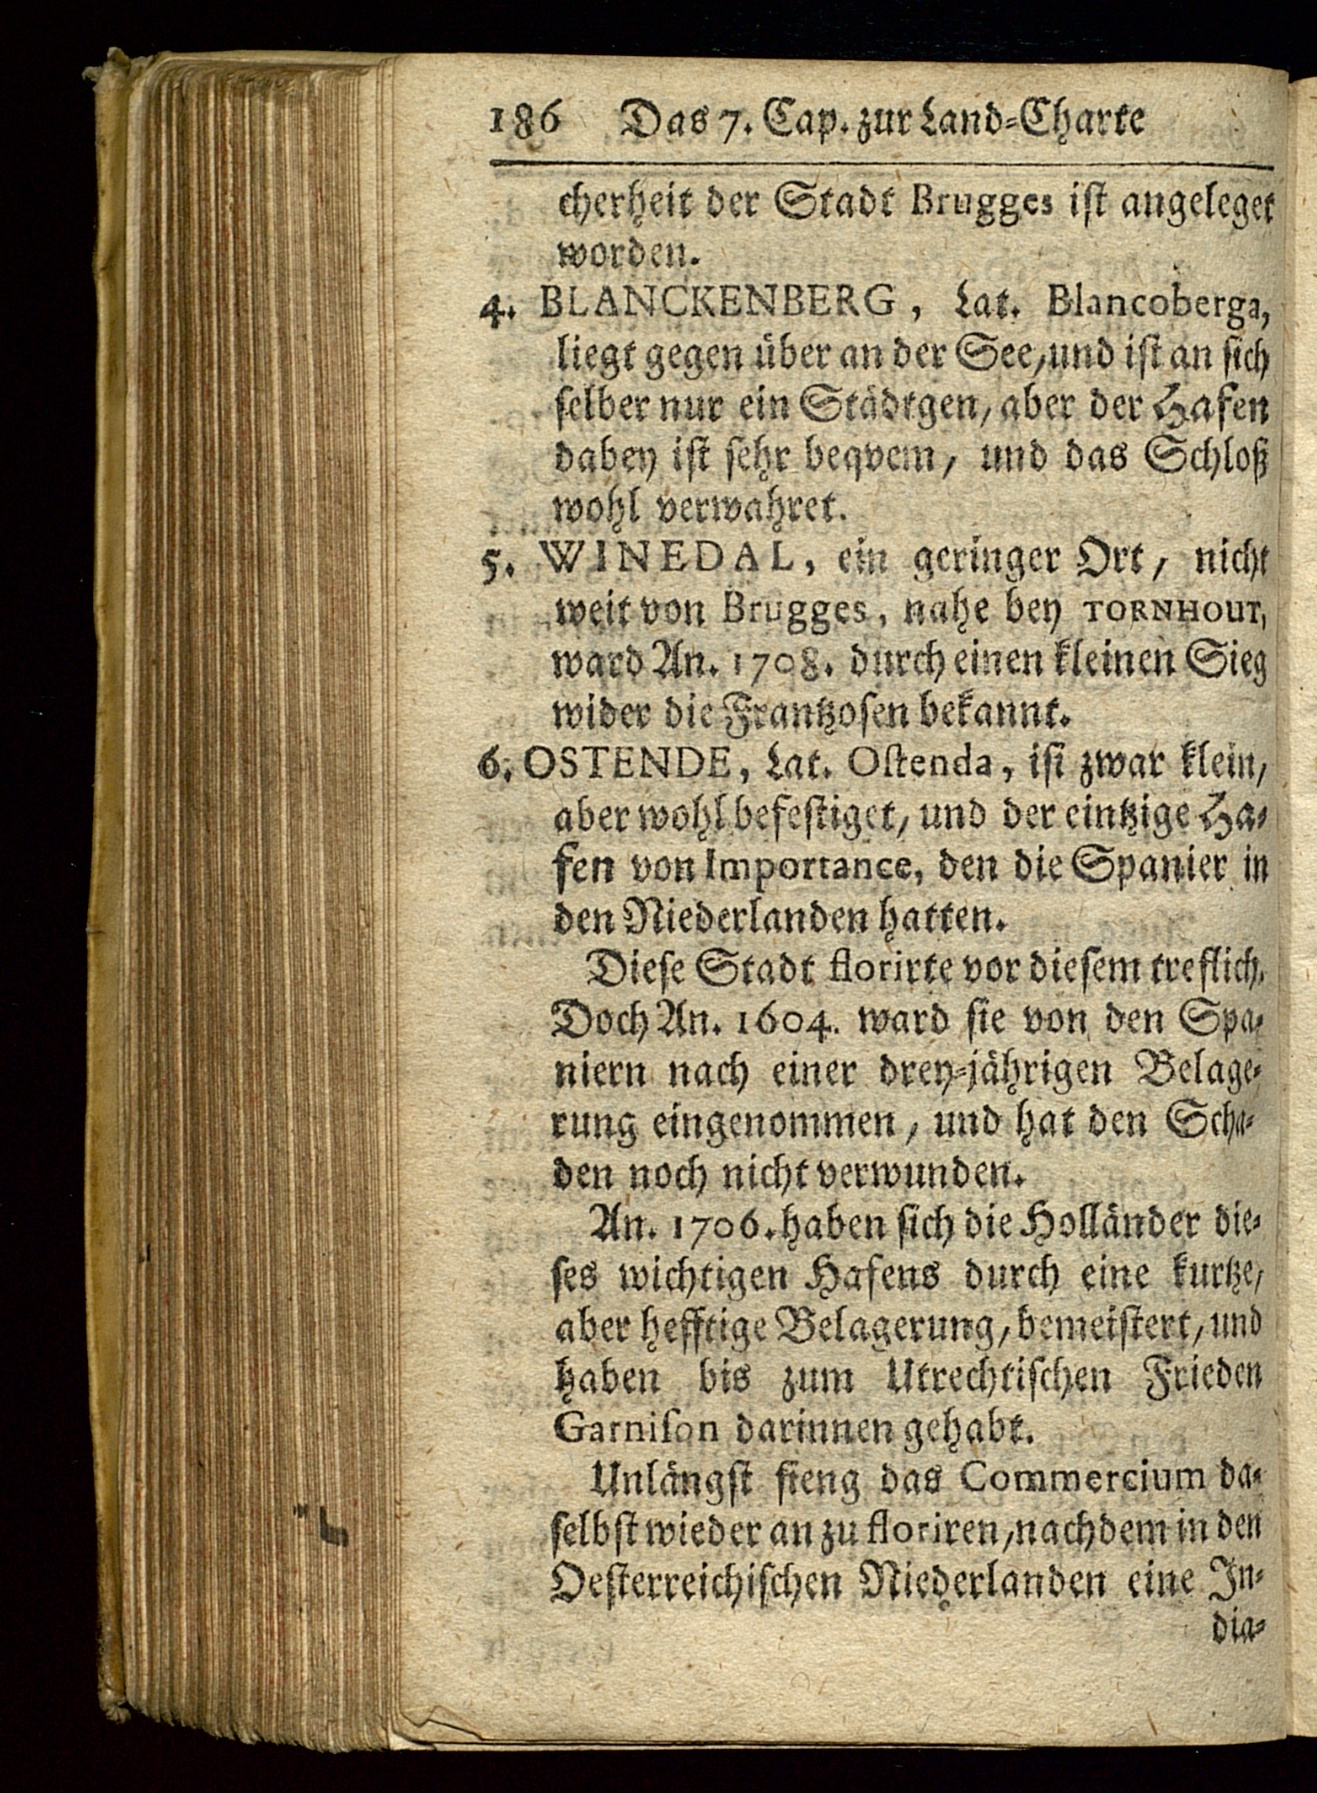 186 Das 7. Cap. zur Land-Charte
cherheit der Stadt Brugges ist angeleget
worden.
4. BLANCKENBERG, Lat. Blancoberga,
liegt gegen über an der See, und ist an sich
selber nur ein Städtgen, aber der Hafen
dabey ist sehr beqvem, und das Schloß
wohl verwahret.
5. WINEDAL, ein geringer Ort, nicht
weit von Brugges, nahe bey TORNHOUT,
ward An. 1708. durch einen kleinen Sieg
wider die Frantzosen bekannt.
6. OSTENDE, Lat. Ostenda, ist zwar klein,
aber wohl befestiget, und der eintzige Ha-
fen von Importance, den die Spanier in
den Niederlanden hatten.
Diese Stadt florirte vor diesem treflich.
Doch An. 1604. ward sie von den Spa-
niern nach einer drey-jährigen Belage-
rung eingenommen, und hat den Scha-
den noch nicht verwunden.
An. 1706. haben sich die Holländer die-
ses wichtigen Hafens durch eine kurtze,
aber hefftige Belagerung, bemeistert, und
haben bis zum Utrechtischen Frieden
Garnison darinnen gehabt.
Unlängst fieng das Commercium da-
selbst wieder an zu floriren, nachdem in den
Oesterreichischen Niederlanden eine In-
dia-